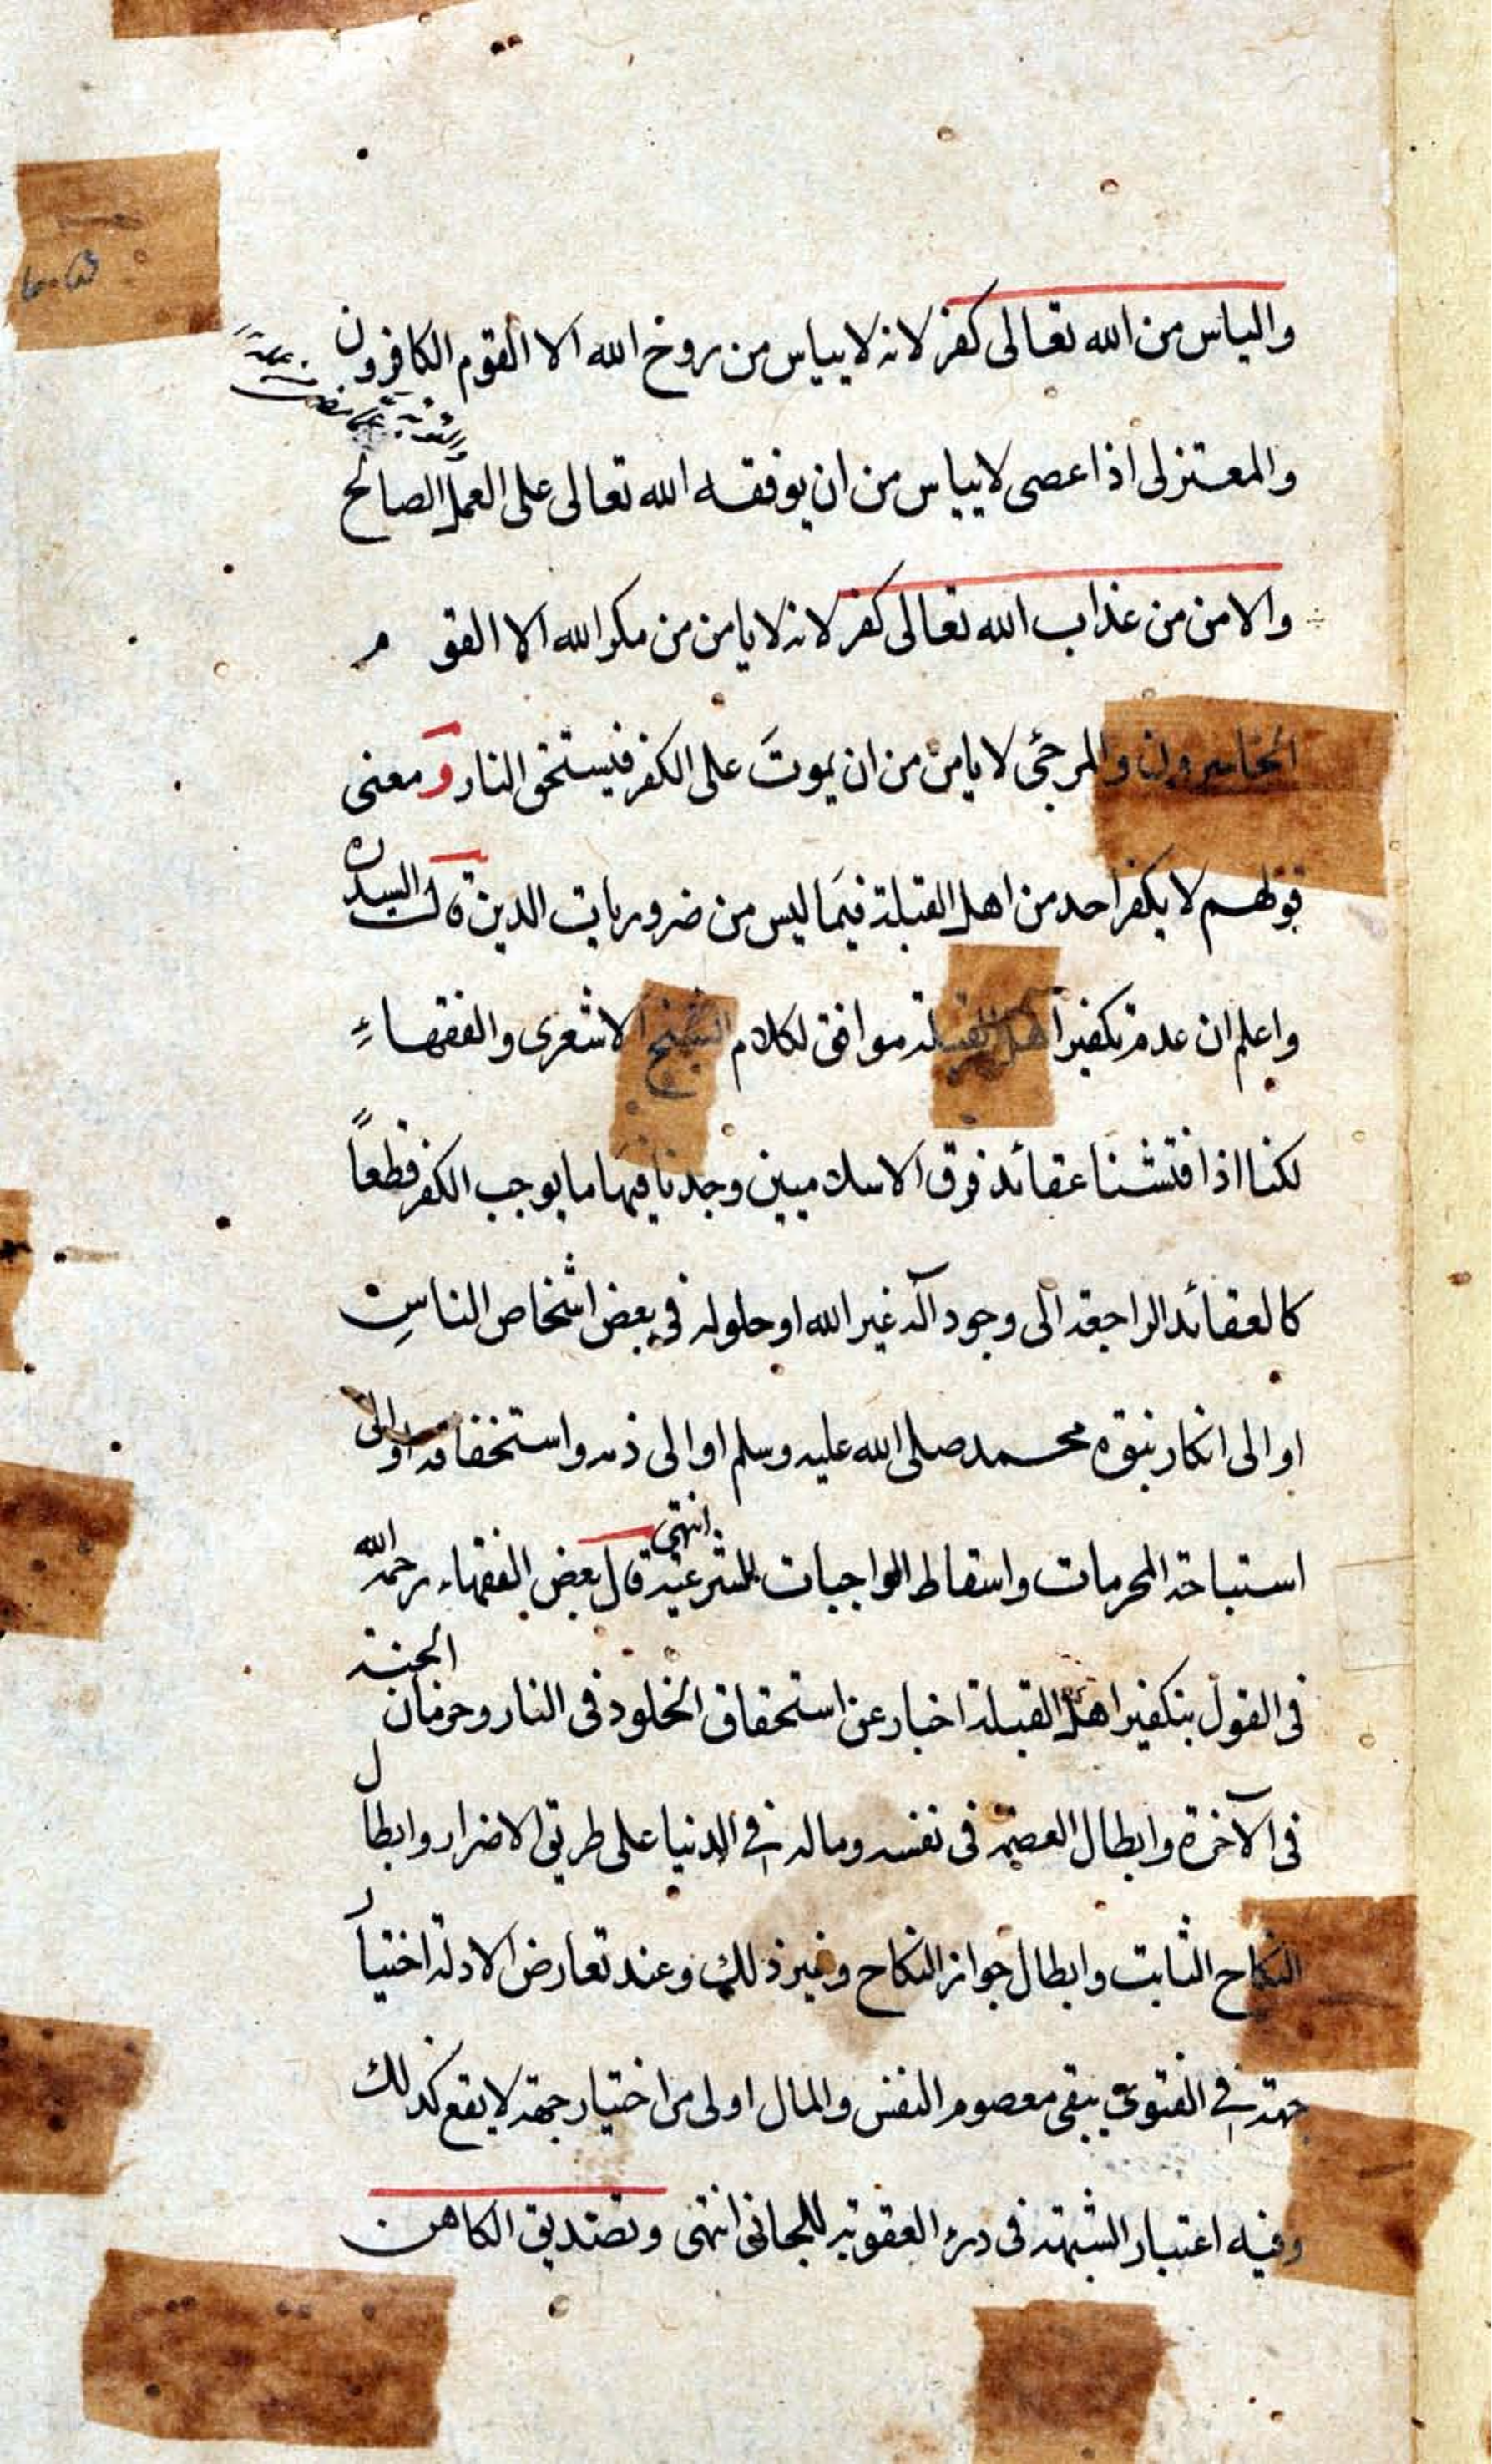 والياس من الله تعالى كفر لانه لا ييياس من روح الله الا القوم الكافرون
والمعتزلى اذا عصى لا يياس من ان يوفقه الله تعالى على العمل الصالح
والامن من عذاب الله تعالى كفر لانه لا يامن من مكر الله الا القوم
الخاسرون والمرجئ لا يامن من ان يموت على الكفر فيستحق النار ومعنى
قولهم لا يكفر احد من اهل القبلة فيما ليس من ضروريات الدين قال السيد
واعلم ان عدم تكفير اهل القبلة موافق لكلام الشيخ الاشعرى والفقهاء
لكنا اذا فتشنا عقائد فرق الاسلاميين وجدنا فيها ما يوجب الكفر قطعاً
كالعقائد الراجعة الى وجود آله غير الله او حلوله فى بعض اشخاص الناس
او الى انكار نبوة محمد صلى الله عليه وسلم او الى ذمه واستخفافه او الى
استباحة المحرمات واسقاط الواجبات الشرعية انتهى قال بعض الفقهاء رحمه الله
فى القول بتكفير اهل القبلة اخبار عن استحقاق الخلود فى النار وحرمان الجنة
فى الآخرة وابطال العصمة فى نفسه وماله فى الدنيا على طريق الاضرار وابطال
النكاح الثابت وابطال جواز النكاح وغير ذلك وعند تعارض الادلة اختيار
جهة فى الفتوى يبقى معصوم النفس والمال اولى من اختيار جهة لا يقع كذلك
وفيه اعتبار الشبهة فى درء العقوبة للجانى انتهى وتصديق الكاهن